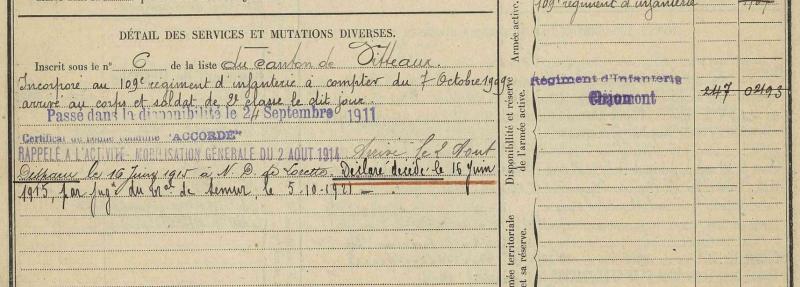 DÉTAIL DES SERVICES ET MUTATIONS DIVERSES.
Inscrit sous le n° 6 de la liste du canton de Vitteaux.
Incorporé au 109e régiment d'infanterie à compter du 7 Octobre 1909
arrivé au corps et soldat de 2e classe le dit jour.
Passé dans la disponibilité le 24 Septembre 1911
Certificat de bonne conduite "ACCORDÉ"
RAPPELÉ A L'ACTIVITÉ. MOBILISATION GÉNÉRALE DU 2 AOUT 1914 Arrivé le 8 Aout
Disparu le 16 Juin 1915 à N. D. de Lorette. Déclaré décédé le 16 Juin
1915, par jugt du de Semur, le 5-10-1921
109e régiment d'infanterie
Armée active.
Disponibilité et réserve
de l'armée active.
Régiment d'Infanterie
247 02193
Armée territoriale
et sa réserve.